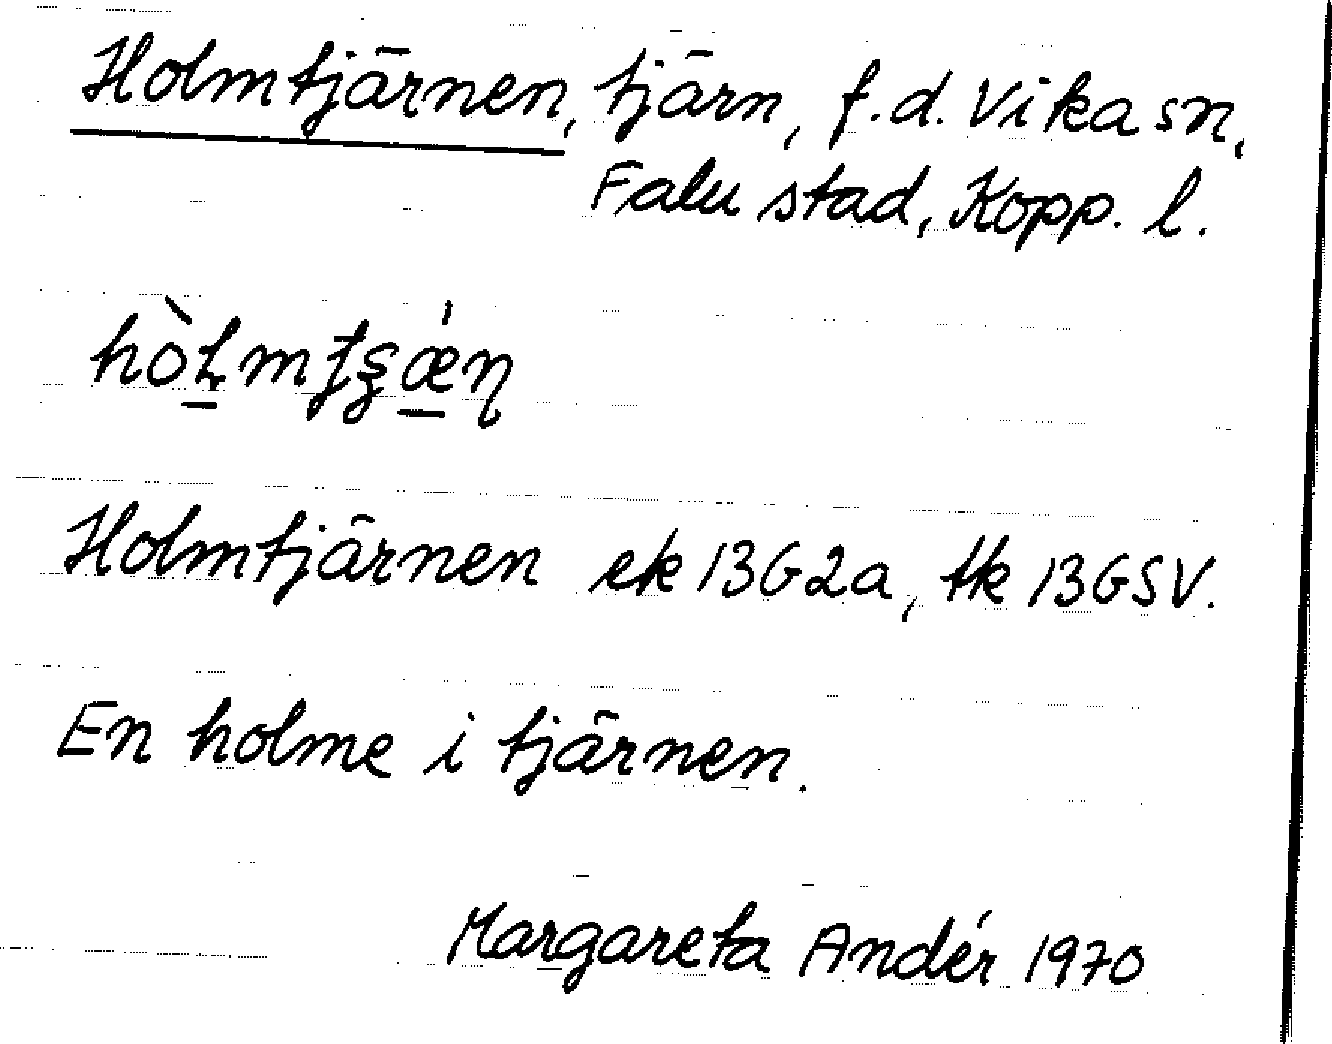 Holmtjärnen, tjärn, f.d. Vika sn,
Falu stad, Kopp. l.
Holmtjärnen ek 13G2a, tk 13GSV.
En holme i tjärnen.
Margareta Andér 1970